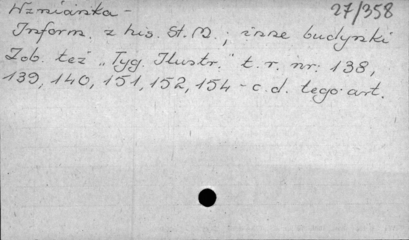 Wzniańska - 27/358
Inform. z his. St. M.; inne budynki
Zob. też "Tyg. Ilustr." t. r. nr: 138,
139, 140, 151, 152, 154 - c.d. tego art.